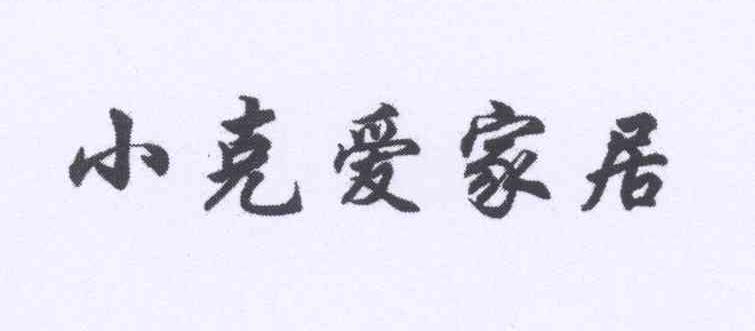 小克爱家居